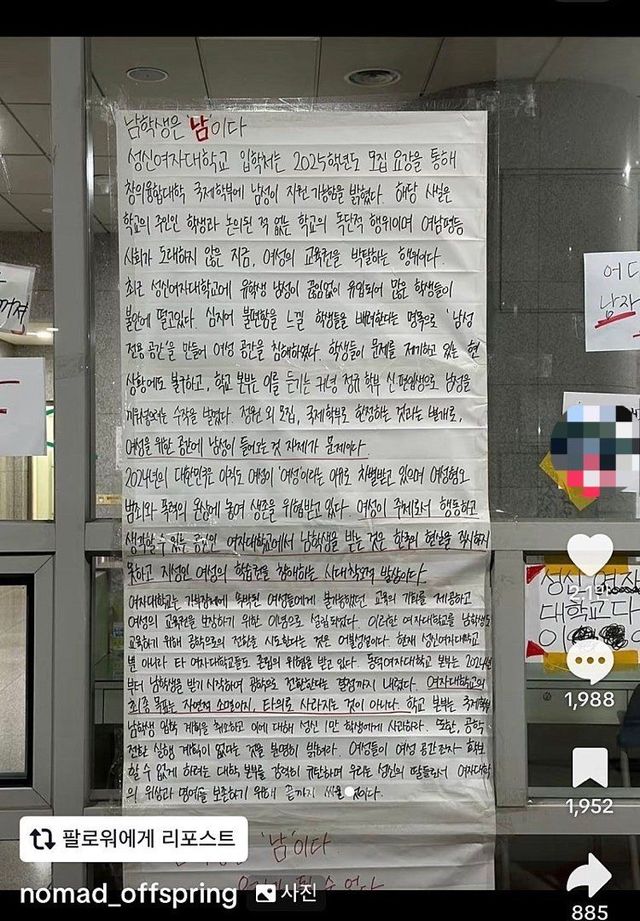 남학생은 '남'이다
성신여자대학교 입학처는 2025학년도 모집 요강을 통해
창의융합대학 국제학부에 남성이 지원 가능함을 밝혔다. 해당 사실은
학교의 주인인 학생과 논의된 적 없는 학교의 독단적 행위이며 여남평등
사회가 도래하지 않은 지금, 여성의 교육권을 박탈하는 행위이다.
최근 성신여자대학교에 유학생 남성이 끊임없이 유입되어 많은 학생들이
불안에 떨고있다. 심지어 불편함을 느낄 학생들을 배려한다는 명목으로 '남성
전용 공간'을 만들어 여성 공간을 침해하였다. 학생들이 문제를 제기하고 있는 현
상황에도 불구하고, 학교 본부는 이를 듣기는 커녕 정규 학부 신·편입생으로 남성을
수작을 벌였다. 정원 외 모집, 국제학부로 한정하는 것과는 별개로,
여성을 위한 공간에 남성이 들어오는 것 자체가 문제이다.
2024년의 대한민국은 아직도 여성이 '여성'이라는 이유로 차별받고 있으며 여성혐오
범죄와 폭력의 온상에 놓여 생존을 위협받고 있다. 여성이 주체로서 행동하고
생각할 수 있는 공간인 여자대학교에서 남학생을 받는 것은 한국의 현실을 직시하지
못하고 지성인 여성의 학습권을 침해하는 시대착오적 발상이다.
여자대학교는 가부장제에 속박된 여성들에게 불가능했던 교육의 기회를 제공하고
여성의 교육권을 보장하기 위한 이념으로 설립되었다. 이러한 여자대학교를 남학생도
교육하기 위해 공학으로의 전환을 시도한다는 것은 어불성설이다. 현재 성신여자대학교
뿐 아니라 타 여자대학교들도 존립의 위협을 받고 있다. 동덕여자대학교 본부는 2024년
부터 남학생을 받기 시작하여 공학으로 전환한다는 결정까지 내렸다. 여자대학교의
최종 목표는 자연적 소멸이지, 타의로 사라지는 것이 아니다. 학교 본부는 국제학부
남학생 입학 계획을 취소하고 이에 대해 성신 1만 학생에게 사과하라. 또한, 공학
전환 실행 계획이 없다는 것을 분명히 밝혀라. 여성들이 여성 공간조차 확보
할 수 없게 하려는 대학 본부를 강력히 규탄하며 우리는 성신의 딸들로서 여자대학
의 위상과 명예를 보존하기 위해 끝까지 싸울 것이다.
'남'이다
어디
남자
성신여자
대학교다
1,988
1,952
885
팔로워에게 리포스트
nomad_offspring 사진